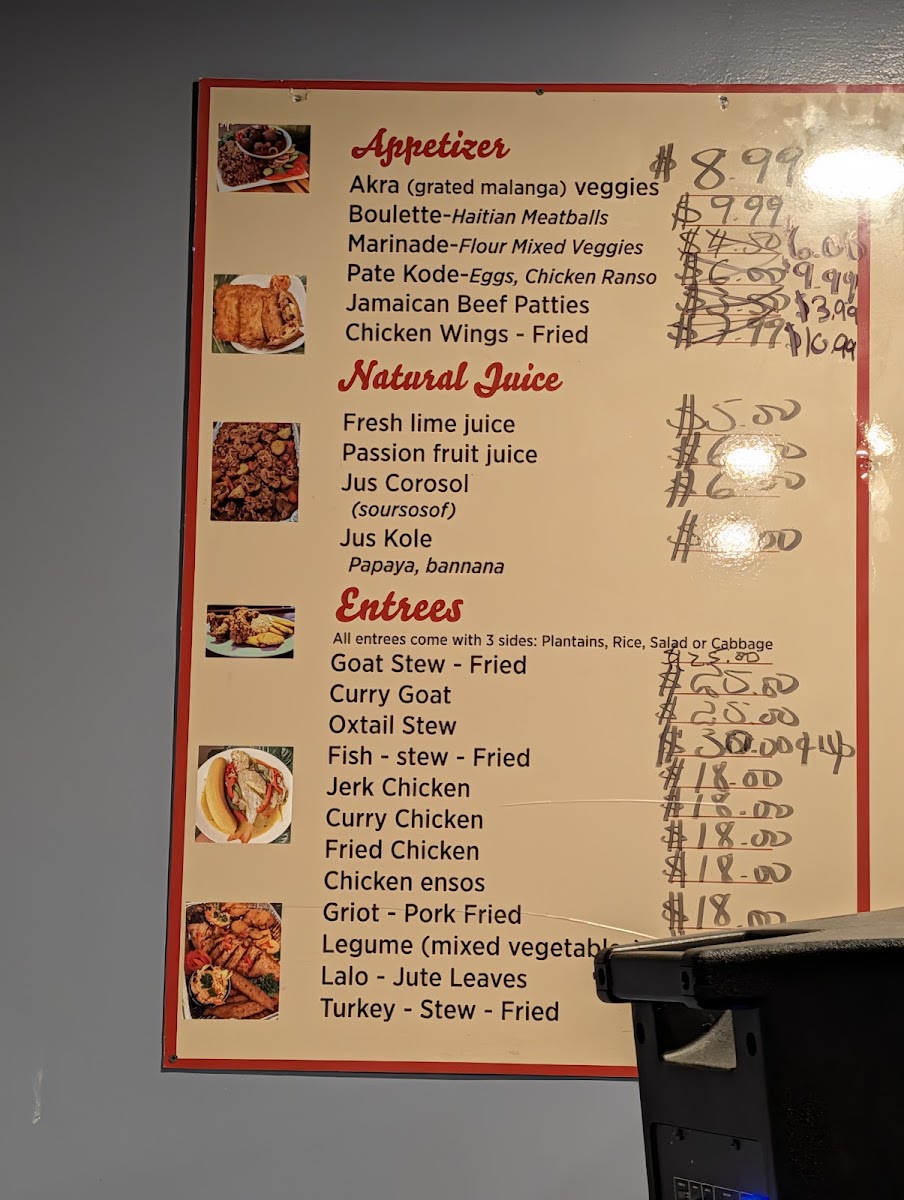 Appetizer
Akra (grated malanga) veggies $ 8.99
Boulette-Haitian Meatballs $ 9.99
Marinade-Flour Mixed Veggies $4.50 6.00
Pate Kode-Eggs, Chicken Ranso 9.99
Jamaican Beef Patties $3.99
Chicken Wings - Fried $10.99
Natural Juice
Fresh lime juice $5.00
Passion fruit juice
Jus Corosol
(soursosof)
Jus Kole
Papaya, bannana
Entrees
All entrees come with 3 sides: Plantains, Rice, Salad or Cabbage
Goat Stew - Fried $25.00
Curry Goat $25.00
Oxtail Stew $25.00
Fish - stew - Fried $30.00 & up
Jerk Chicken $18.00
Curry Chicken $18.00
Fried Chicken $18.00
Chicken ensos $18.00
Griot - Pork Fried $18.00
Legume (mixed
Lalo - Jute Leaves
Turkey - Stew - Fried